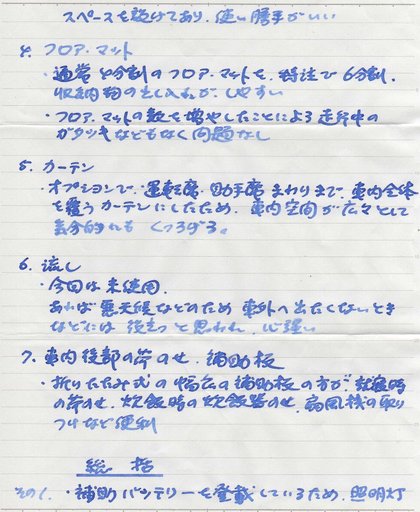 スペースを設けてあり、使い勝手がいい
4. フロア・マット
・通常4分割のフロア・マットを、特注で6分割。
収納物の出し入れがしやすい
・フロア・マットの数を増やしたことによる走行中の
ガタツキなどもなく問題なし
5. カーテン
・オプションで、運転席・助手席まわりまで、車内全体
を覆うカーテンにしたため、車内空間が広々として
気分的にも くつろげる。
6. 流し
・今回は未使用。
あれば悪天候などのため車外へ出たくないとき
などには役立つと思われ、心強い
7. 車内後部の荷のせ、補助板
・折りたたみ式の幅広の補助板の方が、就寝時
の荷のせ、炊飯時の炊飯器のせ、扇風機の取り
つけなど便利
総括
その1. ・補助バッテリーを登載しているため、照明灯